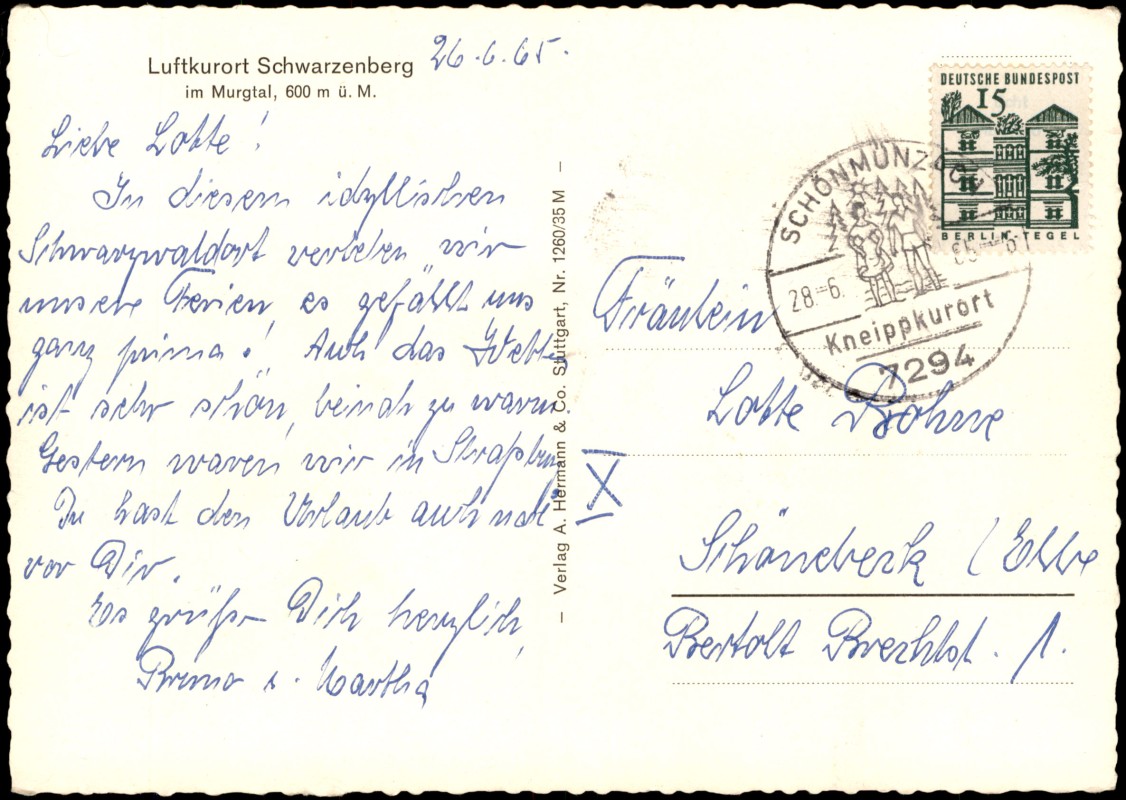 Luftkurort Schwarzenberg
im Murgtal, 600 m ü. M.
26.6.65.
Liebe Lotte!
In diesem idyllischen
Schwarzwaldort verleben wir
unsere Ferien, es gefällt uns
ganz prima! Auch das Wetter
ist sehr schön, beinah zu warm
Gestern waren wir in Straßburg
Du hast den Urlaub auch noch
vor Dir.
Es grüßt Dich herzlich,
Bruno u. Martha
– Verlag A. Hermann & Co. Stuttgart, Nr. 1260/35 M –
DEUTSCHE BUNDESPOST
15
BERLIN-TEGEL
SCHÖNMÜNZ
28.-6.
Kneippkurort
7294
Fräulein
Lotte Böhme
X
Schönebeck (Elbe
Bertolt Brechtst. 1.